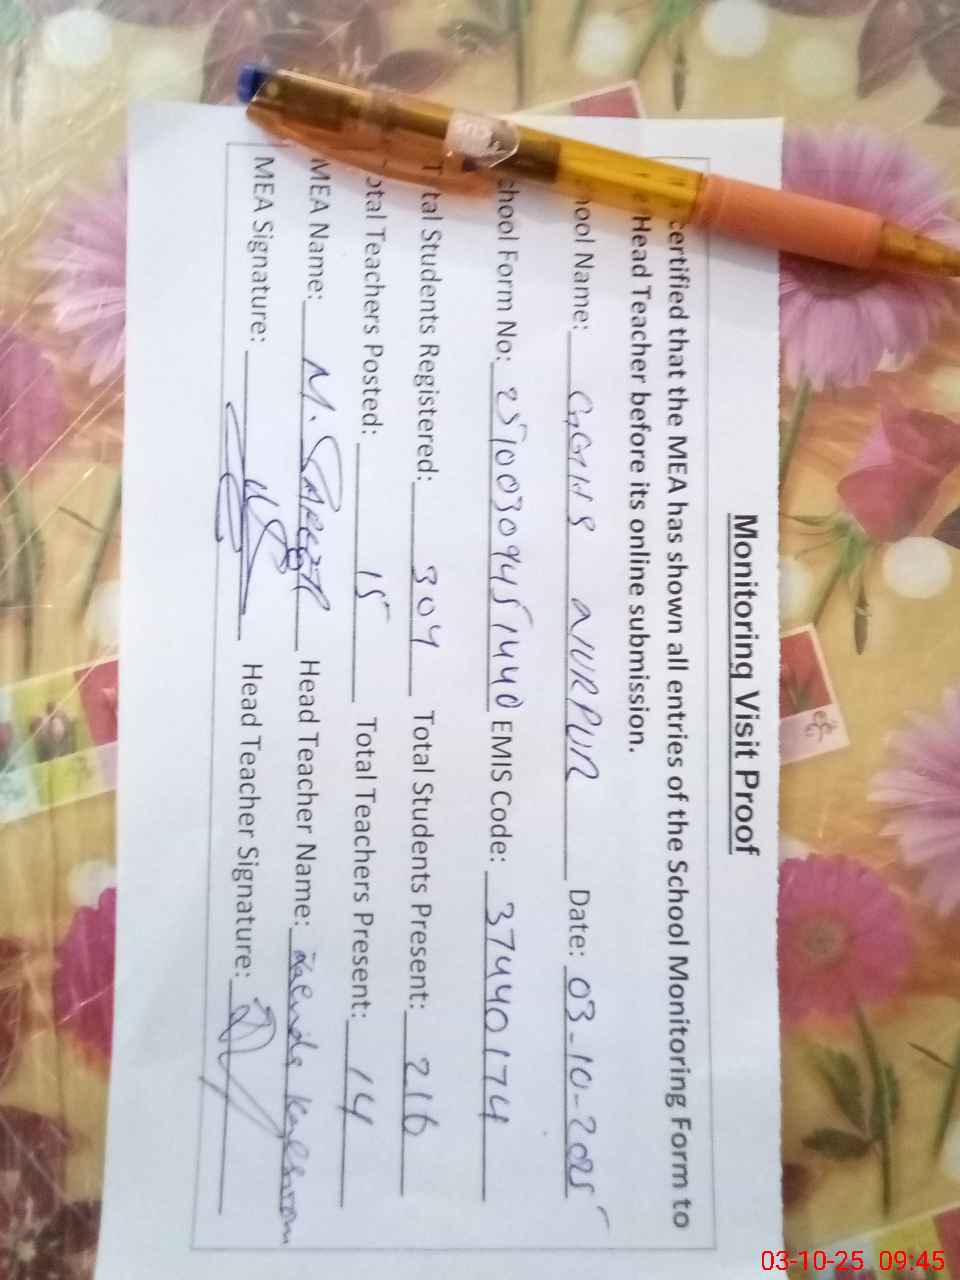 Monitoring Visit Proof
certified that the MEA has shown all entries of the School Monitoring Form to
Head Teacher before its online submission.
hool Name: GGHS NURPUR Date: 03-10-2025
chool Form No: 25100309451440 EMIS Code: 37440174
T tal Students Registered: 304 Total Students Present: 216
otal Teachers Posted: 15 Total Teachers Present: 14
MEA Name: M. Head Teacher Name:
MEA Signature: Head Teacher Signature:
03-10-25 09:45